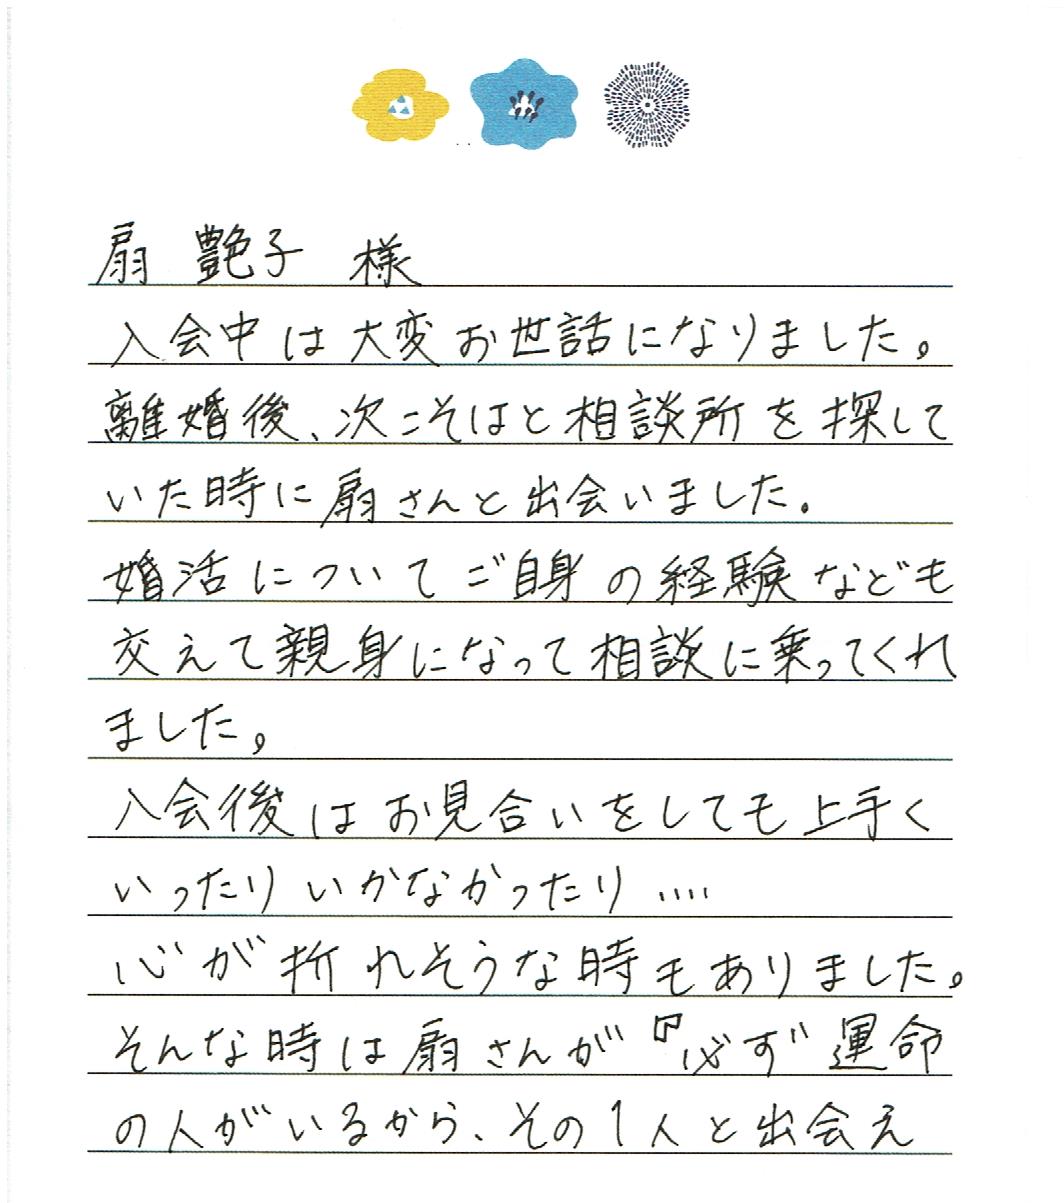 扇 艶子 様
入会中は大変お世話になりました。
離婚後、次こそはと相談所を探して
いた時に扇さんと出会いました。
婚活についてご自身の経験なども
交えて親身になって相談に乗ってくれ
ました。
入会後はお見合いをしても上手く
いったりいかなかったり....
心が折れそうな時もありました。
そんな時は扇さんが『必ず運命
の人がいるから、その1人と出会え